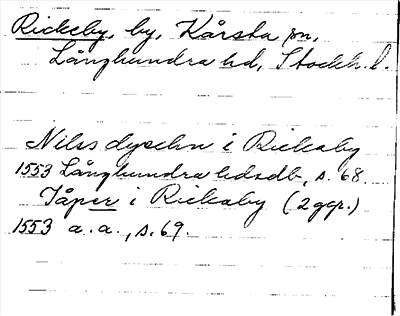 Rickeby, by, Kårsta sn,
Långhundra hd, Stockh. l.
Nilss dyschn i Rickaby
1553 Långhundra hdsdb, s. 68
Jåper i Rickaby (2 ggr.)
1553 a.a., s. 69.